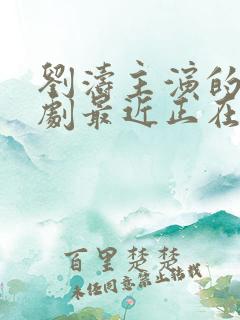 劉濤主演的
劇最近正在
百里楚楚
未經同意禁止轉載